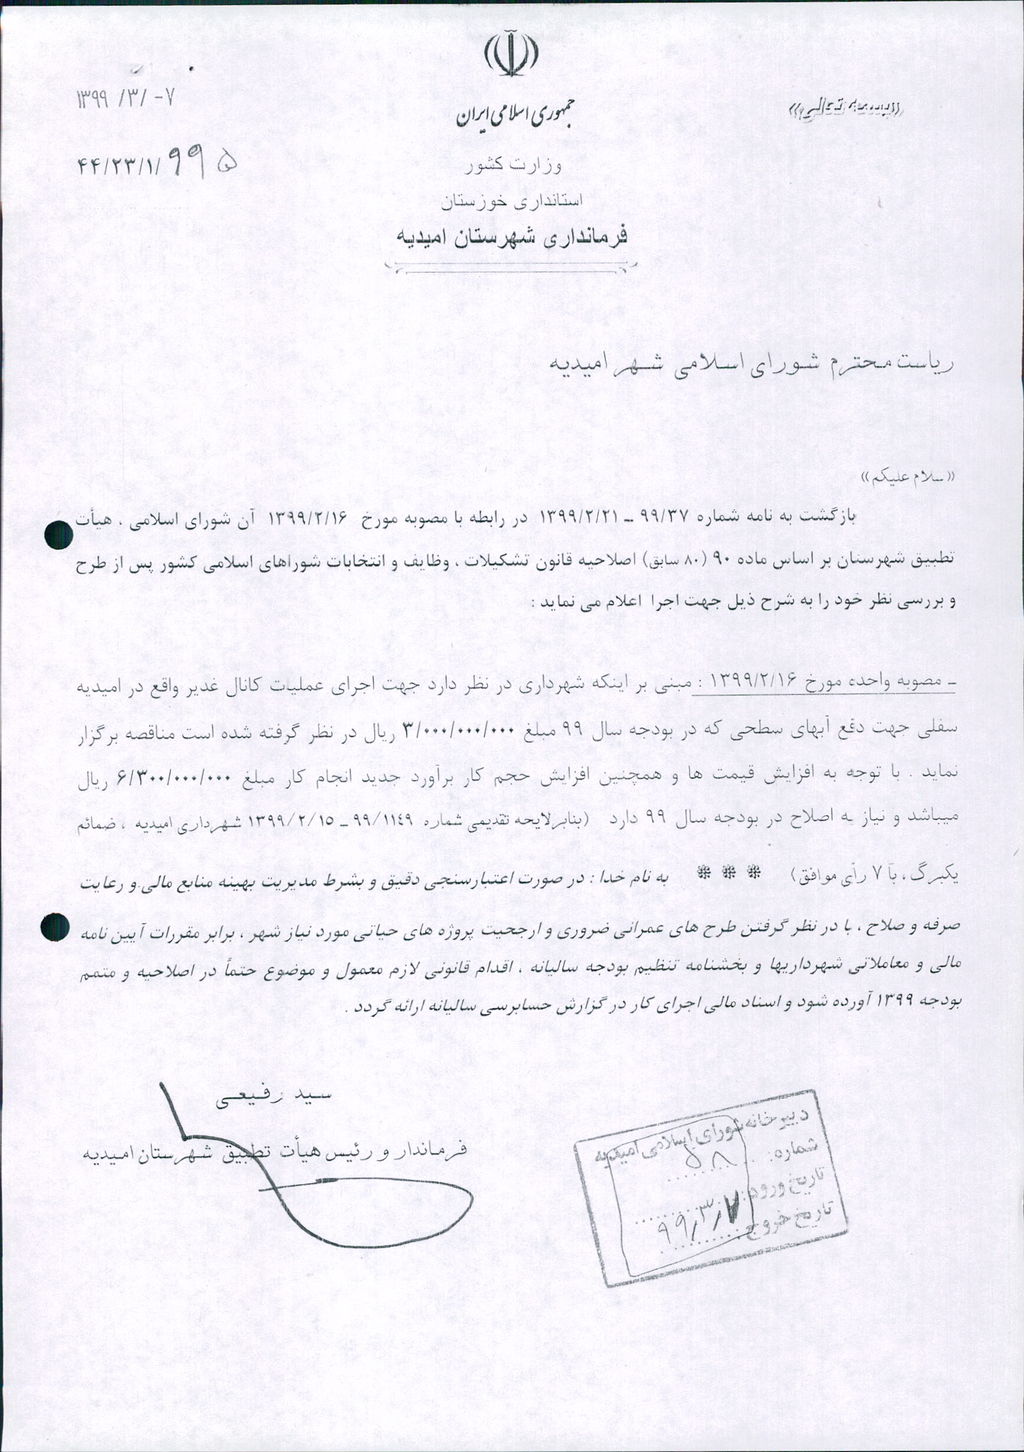 «بسمه تعالی»
جمهوری اسلامی ایران
وزارت کشور
استانداری خوزستان
فرمانداری شهرستان امیدیه
۱۳۹۹/۳/۰۷
۴۴/۲۳/۱/۹۹۵
ریاست محترم شورای اسلامی شهر امیدیه
«سلام علیکم»
بازگشت به نامه شماره ۹۹/۳۷ ــ ۱۳۹۹/۲/۲۱ در رابطه با مصوبه مورخ ۱۳۹۹/۲/۱۶ آن شورای اسلامی ، هیأت
تطبیق شهرستان بر اساس ماده ۹۰ (۸۰ سابق) اصلاحیه قانون تشکیلات ، وظایف و انتخابات شوراهای اسلامی کشور پس از طرح
و بررسی نظر خود را به شرح ذیل جهت اجرا اعلام می نماید :
ــ مصوبه واحده مورخ ۱۳۹۹/۲/۱۶ : مبنی بر اینکه شهرداری در نظر دارد جهت اجرای عملیات کانال غدیر واقع در امیدیه
سفلی جهت دفع آبهای سطحی که در بودجه سال ۹۹ مبلغ ۳/۰۰۰/۰۰۰/۰۰۰ ریال در نظر گرفته شده است مناقصه برگزار
نماید . با توجه به افزایش قیمت ها و همچنین افزایش حجم کار برآورد جدید انجام کار مبلغ ۶/۳۰۰/۰۰۰/۰۰۰ ریال
میباشد و نیاز به اصلاح در بودجه سال ۹۹ دارد (بنابرلایحه تقدیمی شماره ۹۹/۱۱۴۹ ــ ۱۳۹۹/۲/۱۵ شهرداری امیدیه ، ضمائم
یکبرگ ، با ۷ رأی موافق) * * * به نام خدا : در صورت اعتبارسنجی دقیق و بشرط مدیریت بهینه منابع مالی و رعایت
صرفه و صلاح ، با در نظر گرفتن طرح های عمرانی ضروری و ارجحیت پروژه های حیاتی مورد نیاز شهر ، برابر مقررات آیین نامه
مالی و معاملاتی شهرداریها و بخشنامه تنظیم بودجه سالیانه ، اقدام قانونی لازم معمول و موضوع حتماً در اصلاحیه و متمم
بودجه ۱۳۹۹ آورده شود و اسناد مالی اجرای کار در گزارش حسابرسی سالیانه ارائه گردد .
سید رفیعی
فرماندار و رئیس هیأت تطبیق شهرستان امیدیه
دبیرخانه شورای اسلامی امیدیه
شماره: ۵۸
تاریخ ورود: ۹۹/۳/۷
تاریخ خروج: